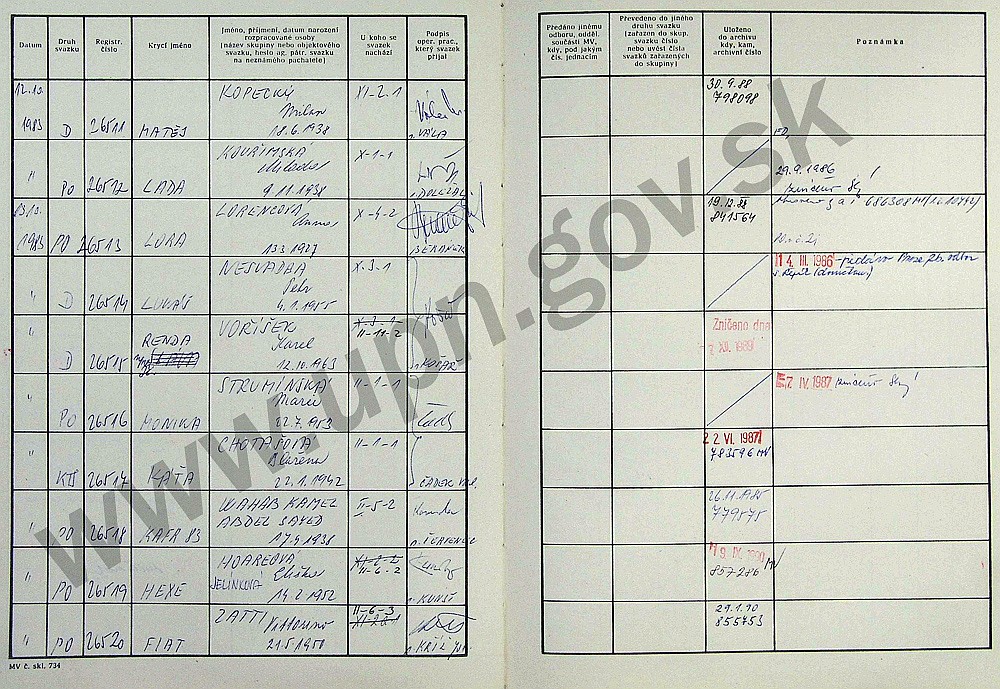 Datum
Druh svazku
Registr. číslo
Krycí jméno
Jméno, příjmení, datum narození
rozpracované osoby
(název skupiny nebo objektového
svazku, heslo ag. pátr. svazku
na neznámého pachatele)
U koho se
svazek
nachází
Podpis
oper. prac.,
který svazek
přijal
Předáno jinému
odboru, odděl.
součásti MV,
kdy, pod jakým
čís. jednacím
Převedeno do jiného
druhu svazku
(zařazen do skup.
svazku číslo
nebo uvést čísla
svazků zařazených
do skupiny)
Uloženo
do archivu
kdy, kam,
archivní číslo
Poznámka
12.10. KOPECKÝ XI-2-1 30.9.88
Milan 798098
1983 D 26511 MATĚJ 18.6.1938 VÁLA
KOUŘIMSKÁ X-1-1
" PO 26512 LADA 9.11.1938 DOLEŽAL 29.9.1986
13.10. LORENCOVÁ X-4-2 19.12.88
Anna 841564
1983 PO 26513 LORA 13.3.1927 BERÁNEK
NESVADBA X-3-1 14. III. 1986
Petr
" D 26514 LUKÁŠ 4.1.1955
" VOŘÍŠEK X-3-1 Zničeno dne
RENDA Karel II-11-2 XII. 1989
D 26515 12.10.1963 KOTÁŘ
STRUMÍNSKÁ II-1-1 7. IV. 1987
Marie
PO 26516 MONIKA 22.7.1953
CHOTAŠOVÁ II-1-1 22. VI. 1987
Blažena 783596 MV
" KTS 26517 KÁŤA 22.1.1942 ČADEK
WAHAB KAMEL II-5-2 26.11.1985
ABDEL SAYED 779575
" PO 26518 KAFR 83 17.4.1938
HOAREOVÁ XI-2-2 19. IV. 1990
JELÍNKOVÁ Eliška II-6-2 857286 MV
" PO 26519 HEXE 14.2.1952 KUNST
ZATTI II-6-3 29.1.90
Vittorino 855753
" PO 26520 FIAT 21.5.1950 KŘÍŽ
MV č. skl. 734
www.upn.gov.sk